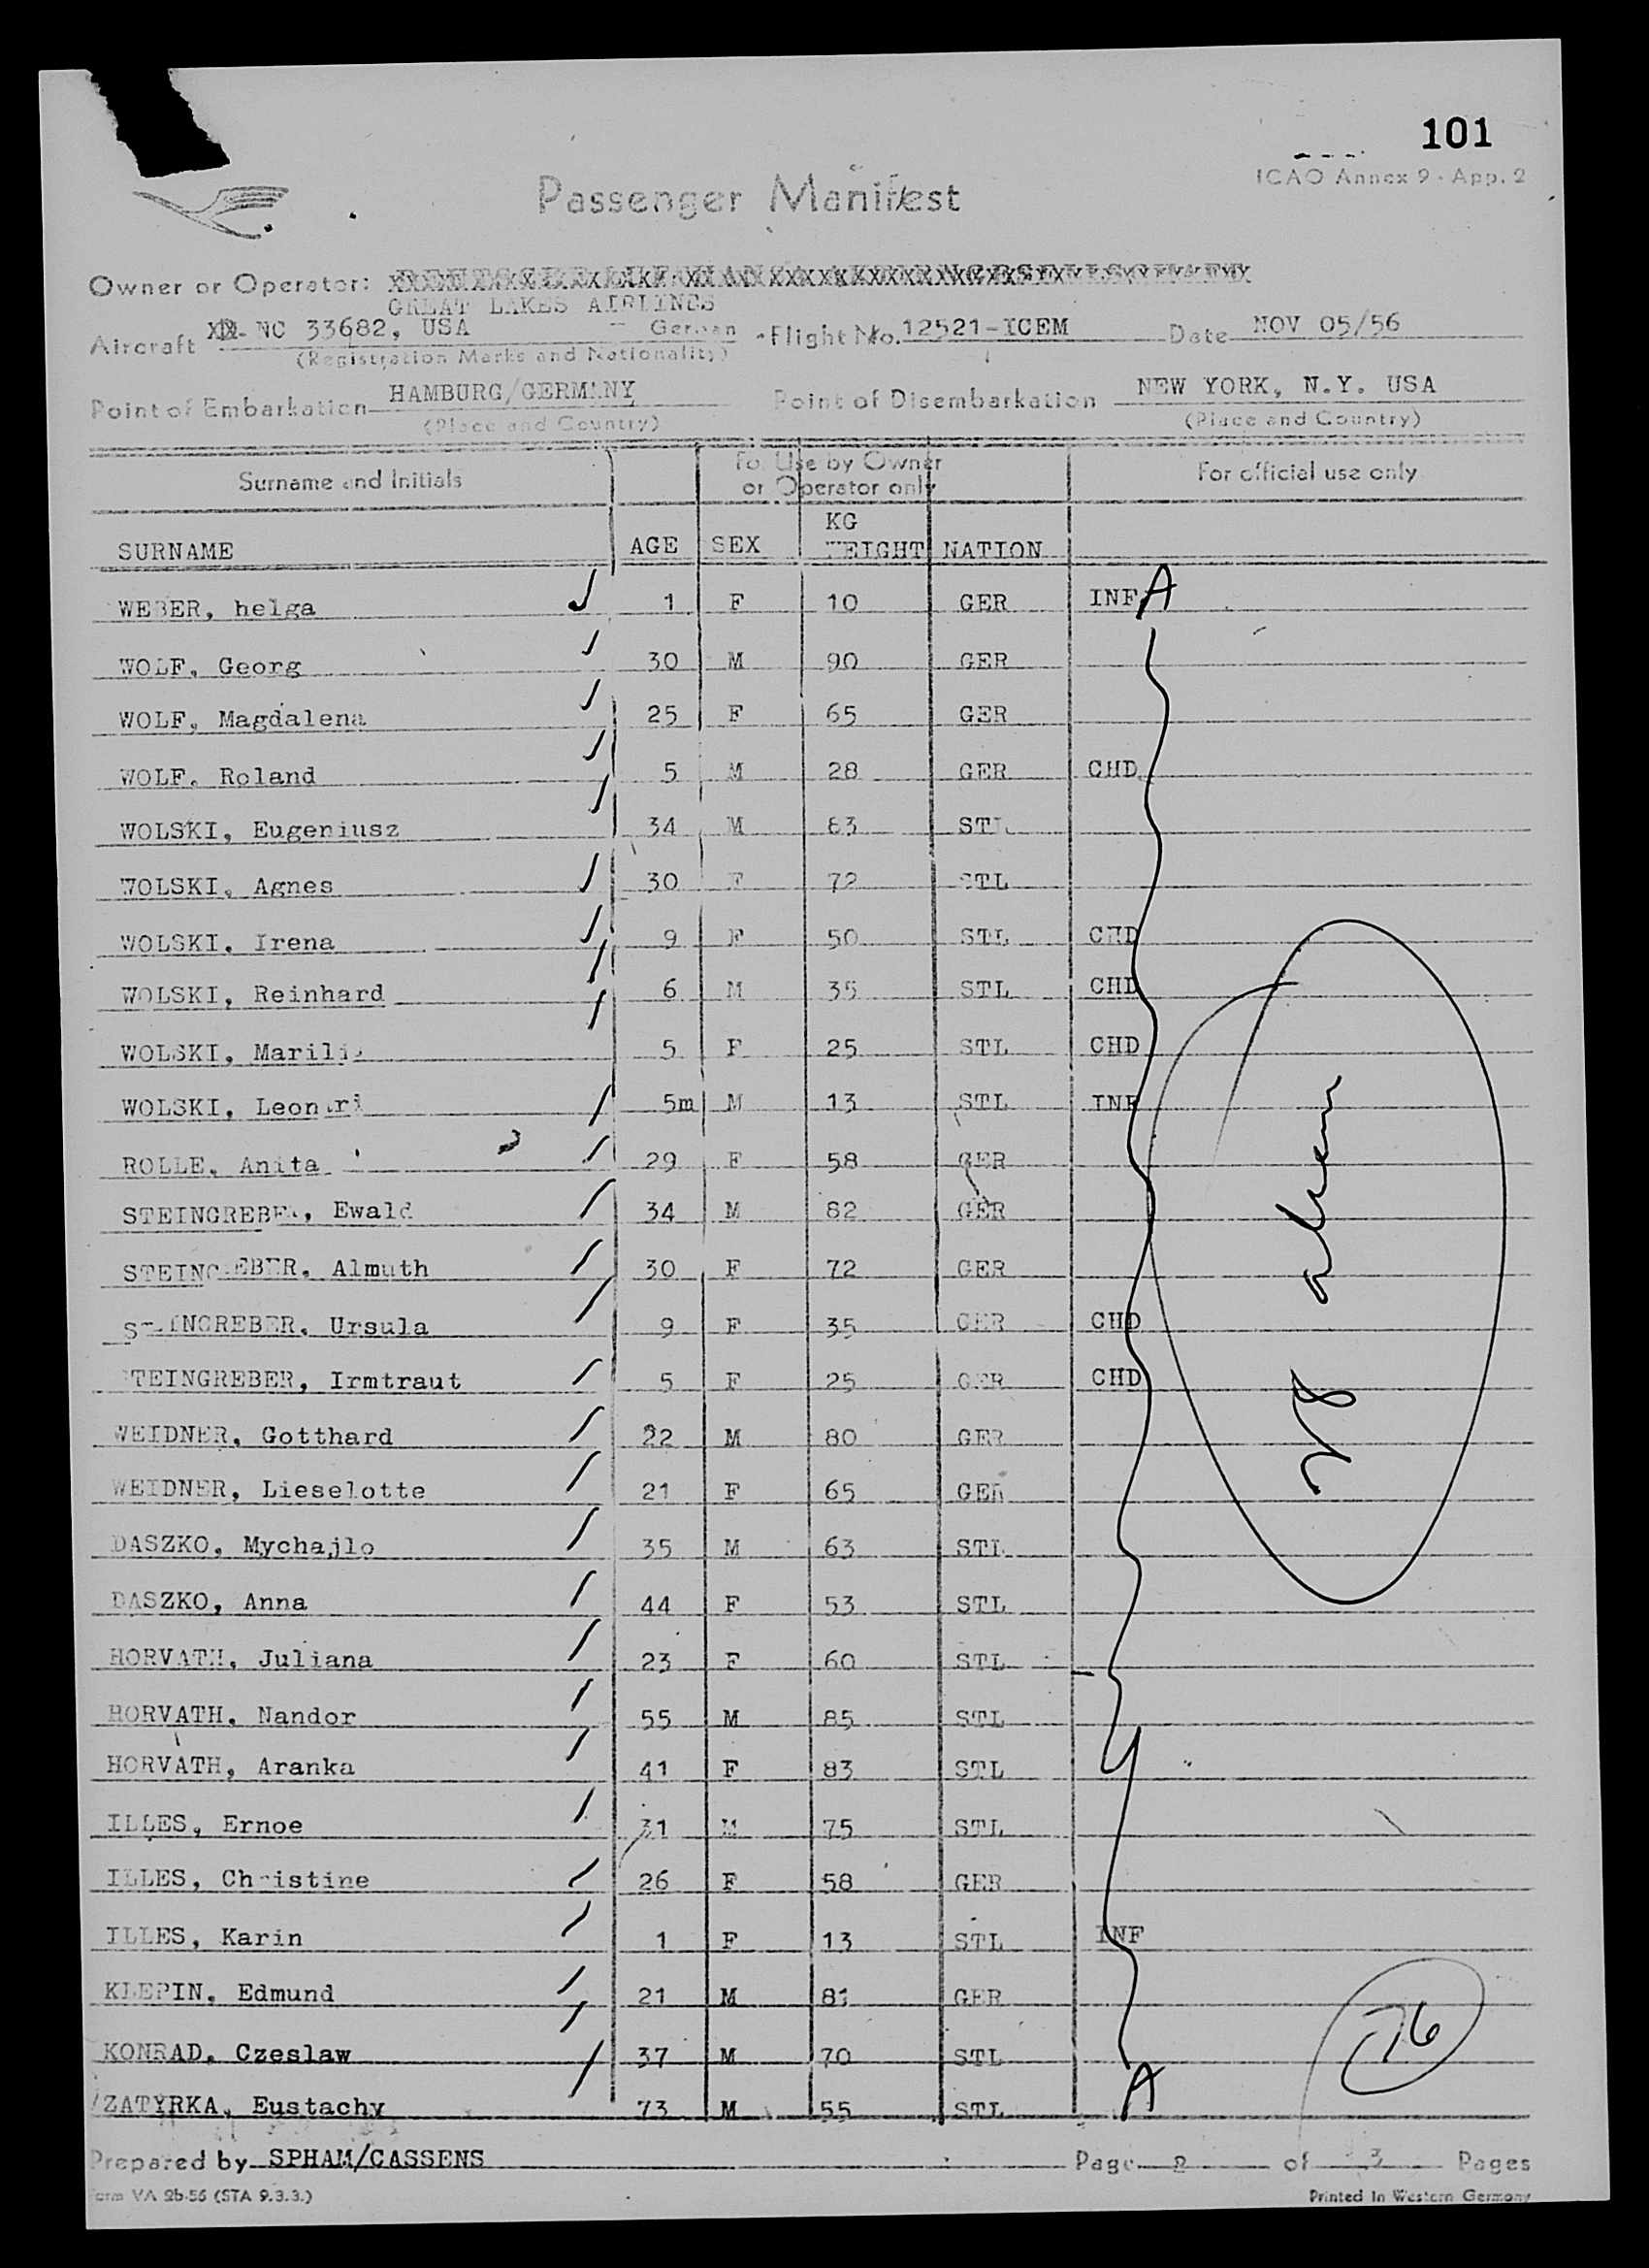 101
ICAO Annex 9 - App. 2
Passenger Manifest
Owner or Operator:
GREAT LAKES AIRLINES
Aircraft NC 33682, USA - German Flight No. 12521-ICEM Date NOV 05/56
(Registration Marks and Nationality)
Point of Embarkation HAMBURG/GERMANY Point of Disembarkation NEW YORK, N.Y. USA
(Place and Country) (Place and Country)
Surname and Initials For Use by Owner or Operator only For official use only
SURNAME AGE SEX KG WEIGHT NATION
WEBER, helga 1 F 10 GER INF A
WOLF, Georg 30 M 90 GER
WOLF, Magdalena 25 F 65 GER
WOLF, Roland 5 M 28 GER CHD
WOLSKI, Eugeniusz 34 M 83 STL
WOLSKI, Agnes 30 F 72 STL
WOLSKI, Irena 9 F 50 STL CHD
WOLSKI, Reinhard 6 M 35 STL CHD
WOLSKI, 5 F 25 STL CHD
WOLSKI, 5m M 13 STL INF
ROLLE, Anita 29 F 58 GER
STEINGREBER, Ewald 34 M 82 GER
STEINGREBER, Almuth 30 F 72 GER
STEINGREBER, Ursula 9 F 35 GER CHD
STEINGREBER, Irmtraut 5 F 25 GER CHD
WEIDNER, Gotthard 22 M 80 GER
WEIDNER, Lieselotte 21 F 65 GER
DASZKO, Mychajlo 35 M 63 STL
DASZKO, Anna 44 F 53 STL
HORVATH, Juliana 23 F 60 STL
HORVATH, Nandor 55 M 85 STL
HORVATH, Aranka 41 F 83 STL
ILLES, Ernoe 31 M 75 STL
ILLES, Christine 26 F 58 GER
ILLES, Karin 1 F 13 STL INF
KLEPIN, Edmund 21 M 81 GER
KONRAD, Czeslaw 37 M 70 STL
ZATYRKA, Eustachy 73 M 55 STL A
28 aliens
76
Prepared by SPHAM/CASSENS Page 2 of 3 Pages
Form VA 2b-56 (STA 9.3.3.) Printed in Western Germany